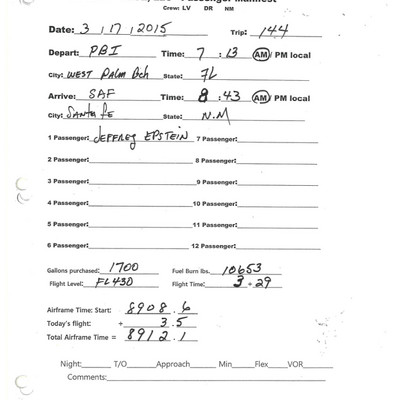 Passenger Manifest
Crew: LV DR NM
Date: 3 / 17 / 2015 Trip: 144
Depart: PBI Time: 7 : 13 AM / PM local
City: WEST PALM Bch State: FL
Arrive: SAF Time: 8 : 43 AM / PM local
City: SANTA FE State: N.M
1 Passenger: JEFFREY EPSTEIN 7 Passenger:
2 Passenger: 8 Passenger:
3 Passenger: 9 Passenger:
4 Passenger: 10 Passenger:
5 Passenger: 11 Passenger:
6 Passenger: 12 Passenger:
Gallons purchased: 1700 Fuel Burn lbs. 10653
Flight Level: FL430 Flight Time: 3 + 29
Airframe Time: Start: 8908.6
Today's flight: + 3.5
Total Airframe Time = 8912.1
Night: T/O Approach Min Flex VOR
Comments: